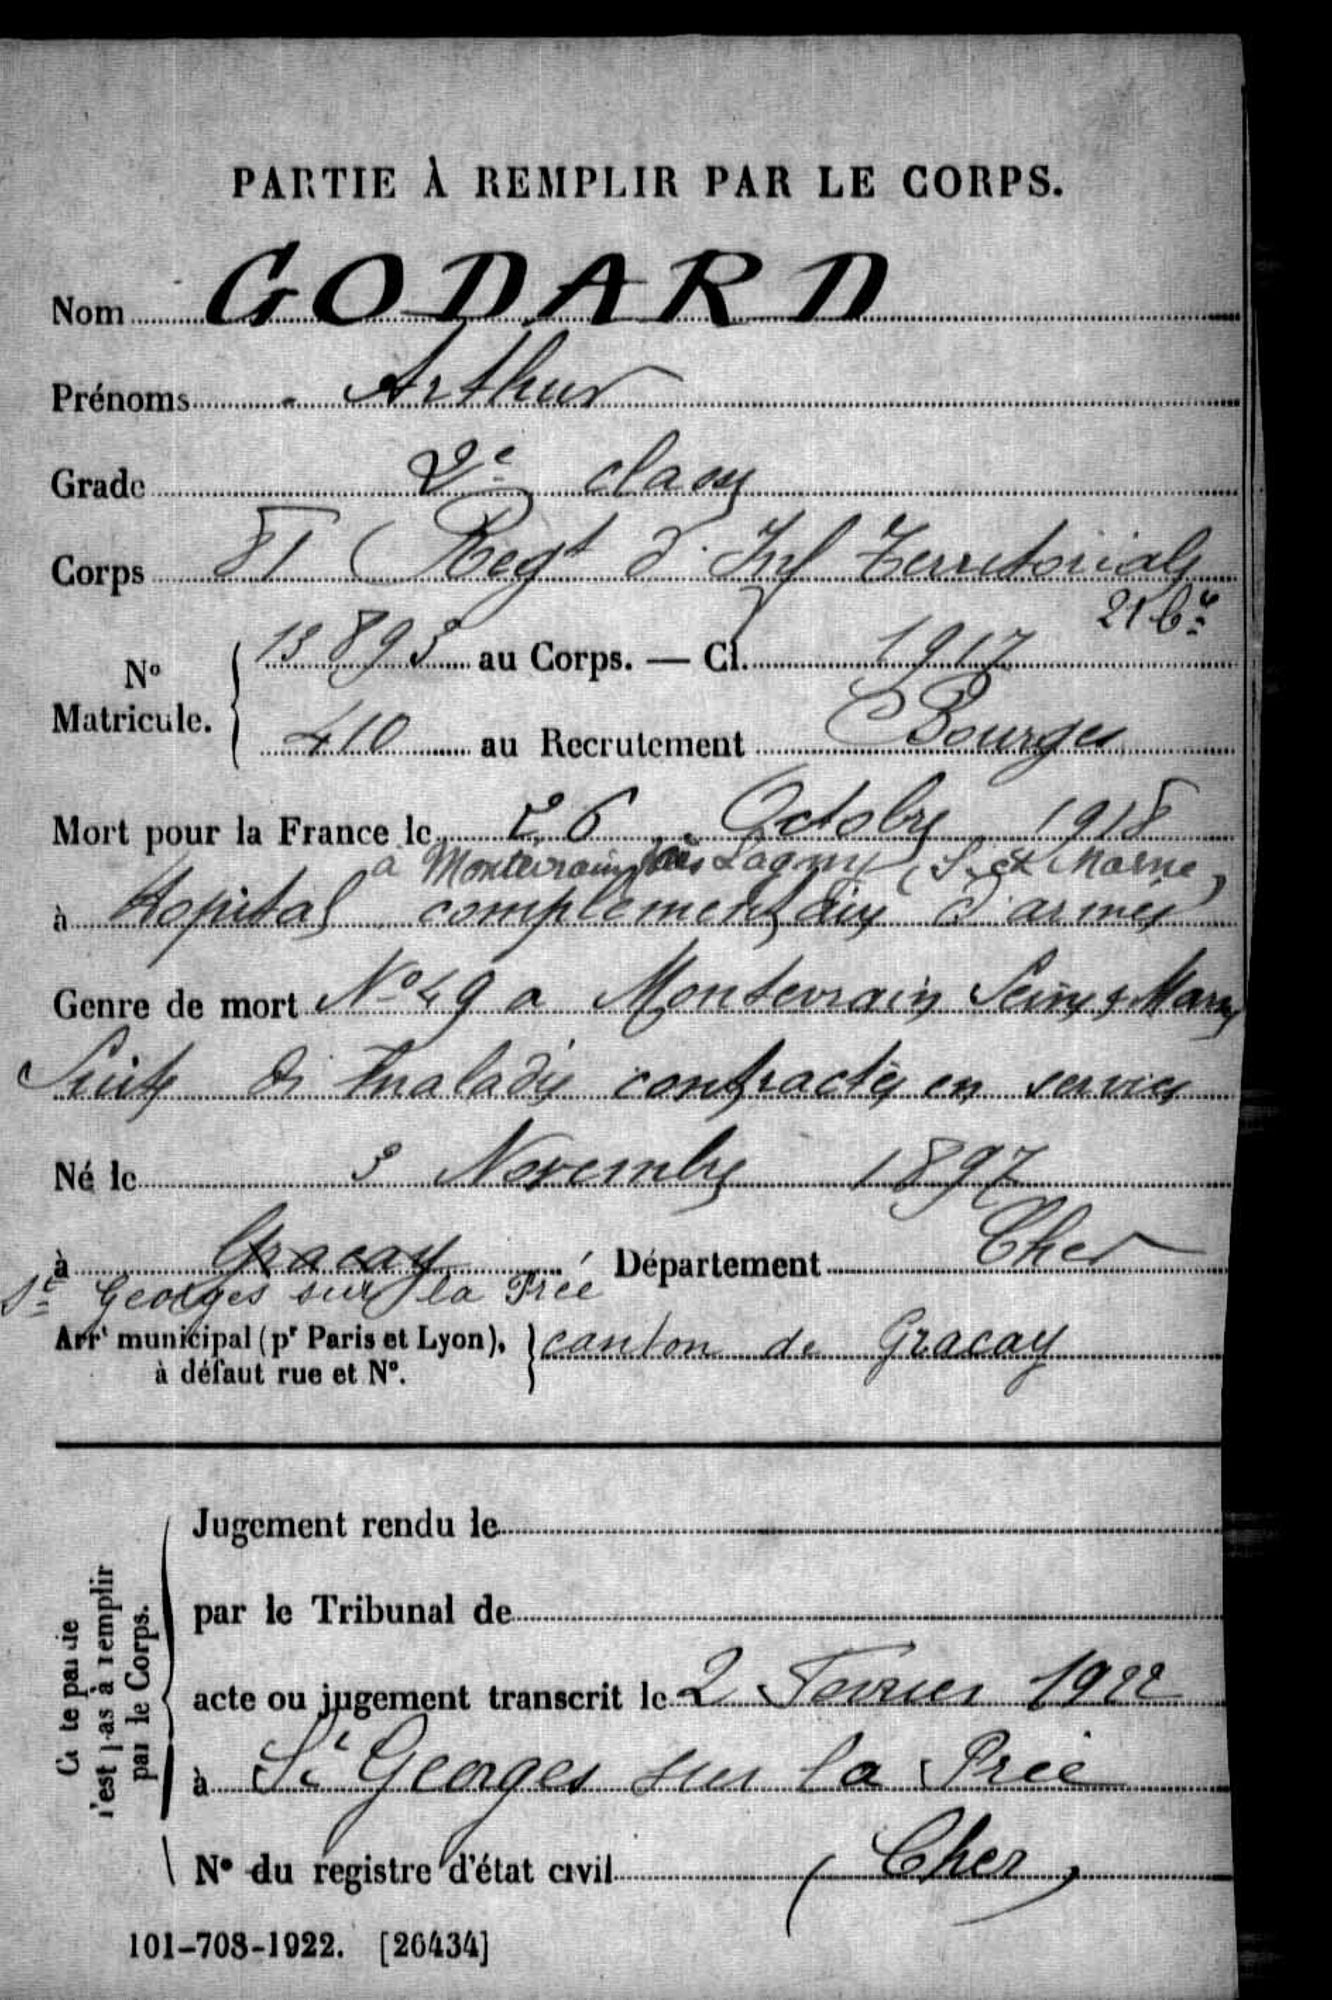 PARTIE À REMPLIR PAR LE CORPS.
Nom GODARD
Prénoms Arthur
Grade 2e classe
Corps 81 Regt d'Inf Territoriale
21 bie
No Matricule. 13893 au Corps. — Cl. 1917
410 au Recrutement Bourges
Mort pour la France le 26 Octobre 1918
à Montévrain près Lagny (S. et Marne)
à Hopital complémentaire d'armée
Genre de mort No 49 a Montevrain Seine & Marne
Suite de maladie contractée en service
Né le 3 Novembre 1897
à Gracay Département Cher
St Georges sur la Prée
Arrt municipal (pr Paris et Lyon), à défaut rue et No. } canton de Gracay
Jugement rendu le
par le Tribunal de
acte ou jugement transcrit le 2 Fevrier 1922
à St Georges sur la Prée
No du registre d'état civil (Cher)
Cette partie n'est pas à remplir par le Corps.
101-708-1922. [26434]